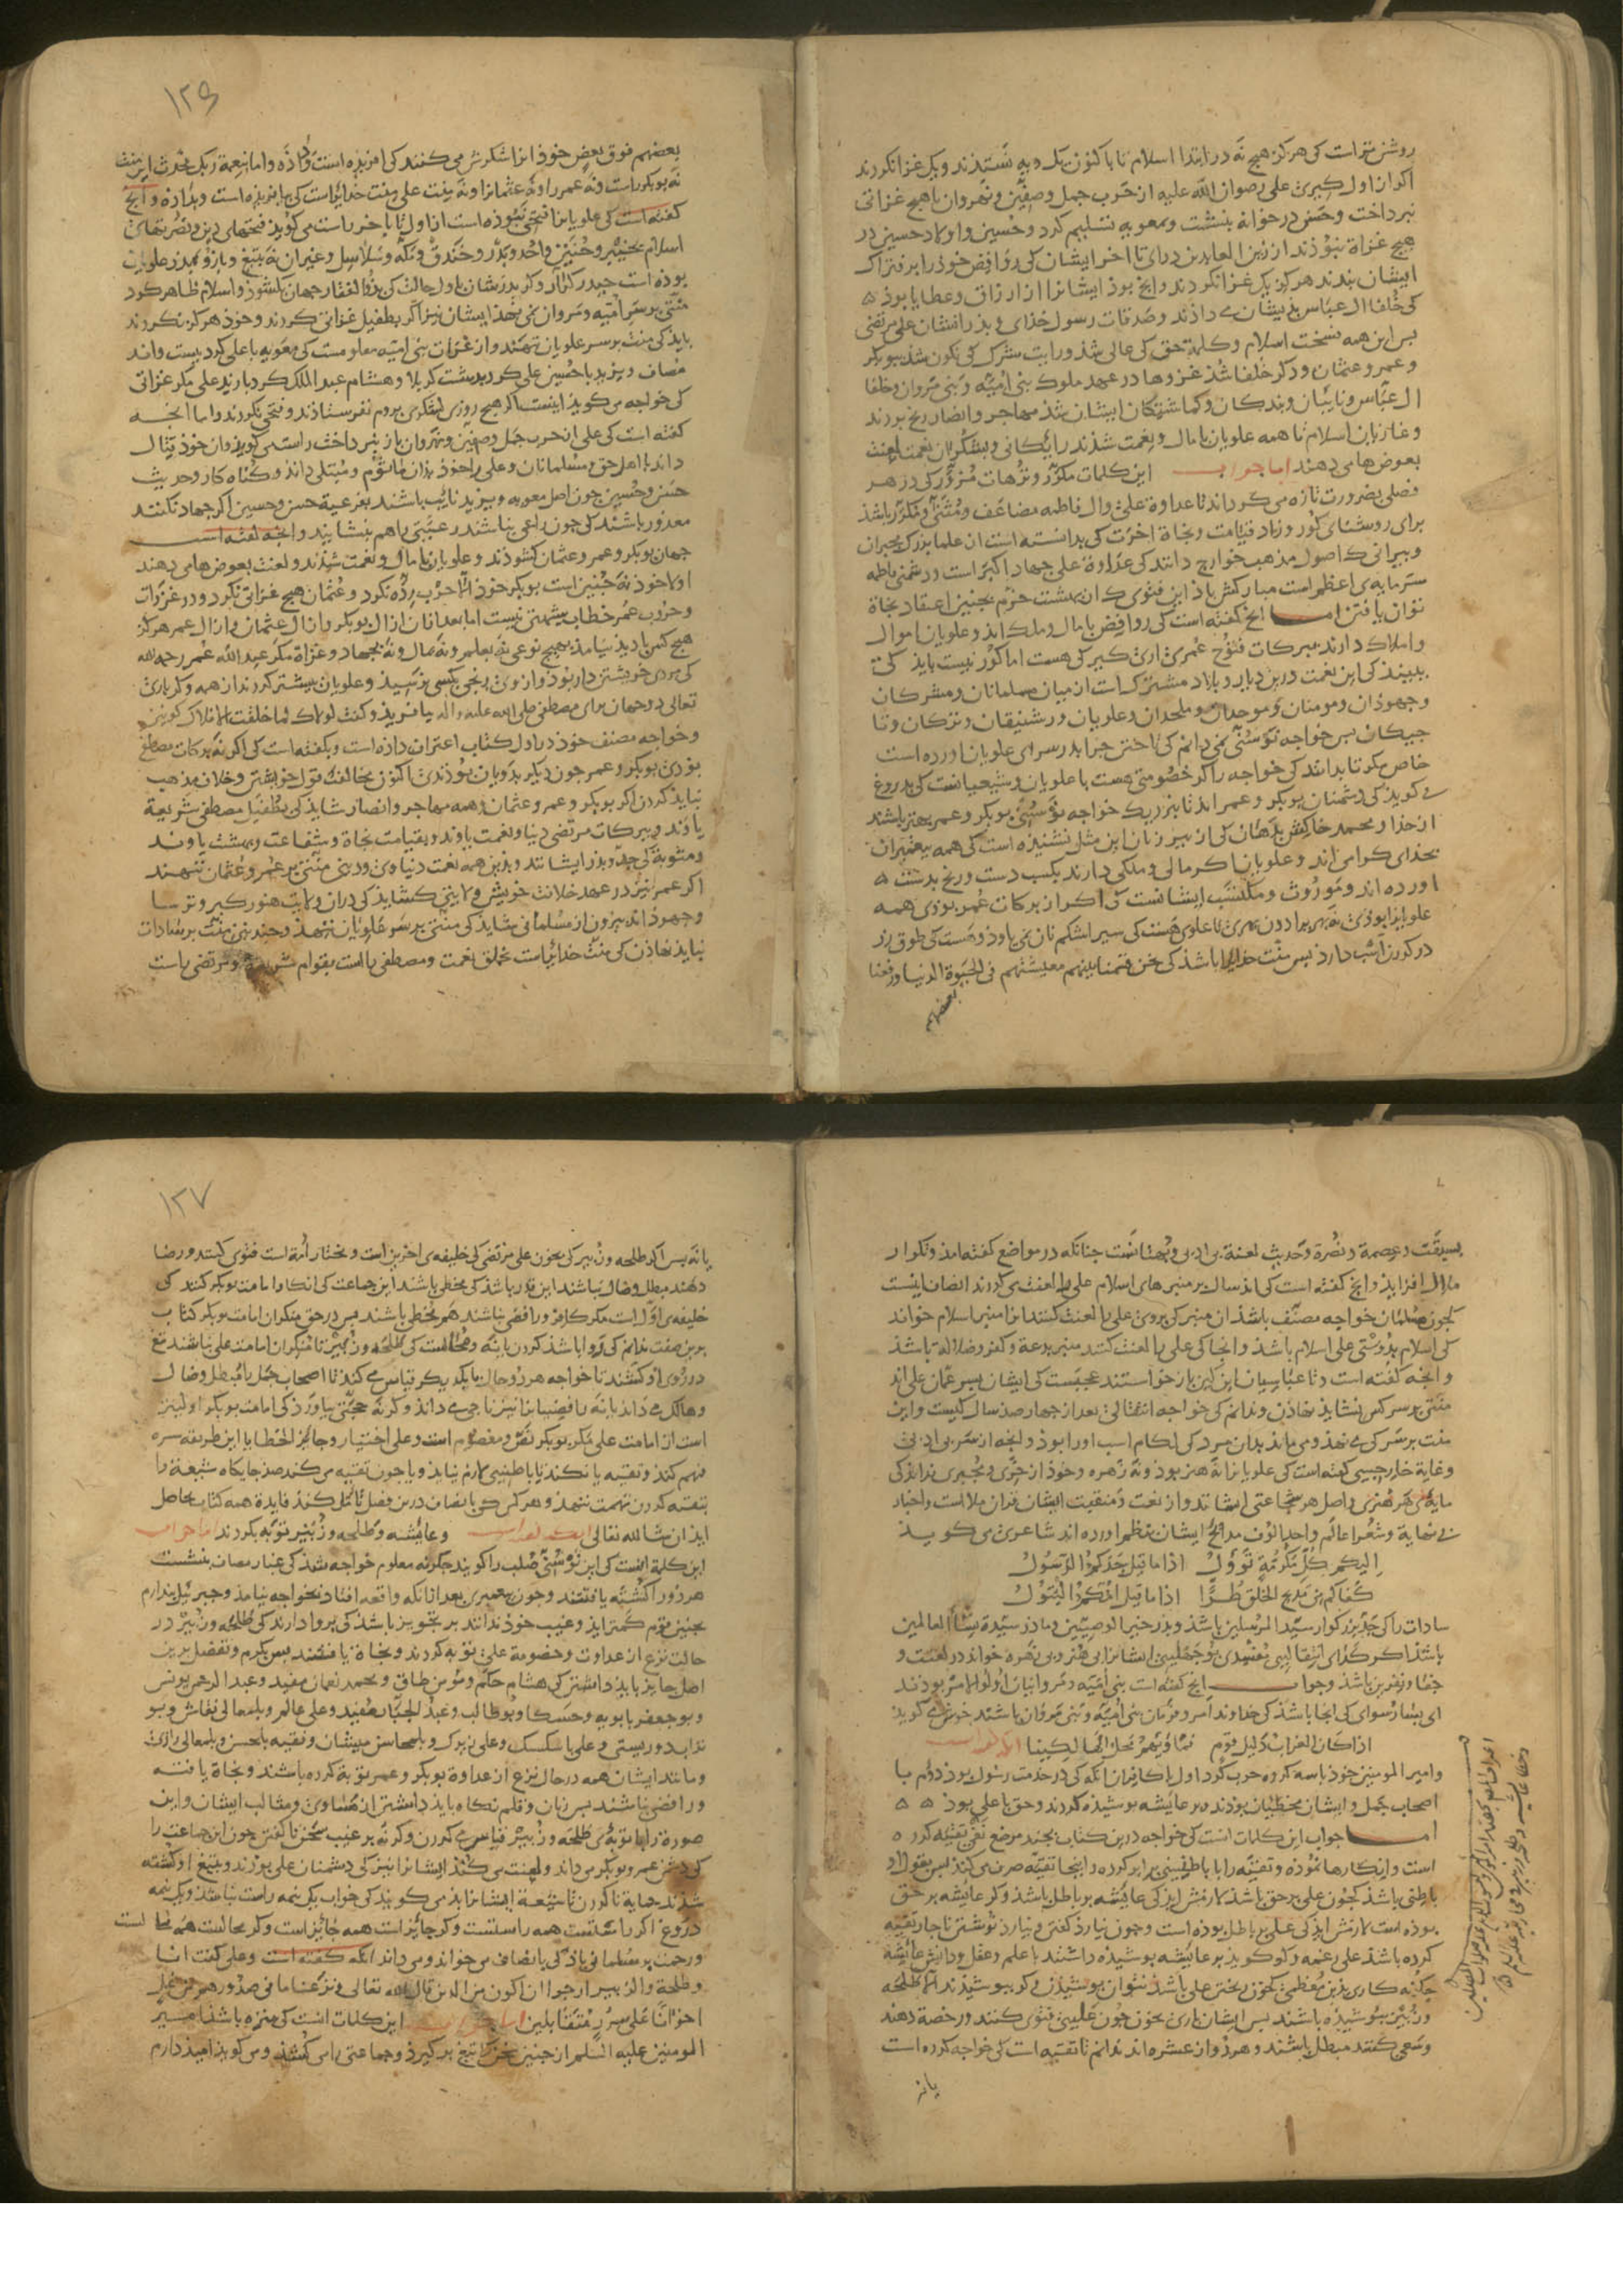 روشن تر است کی هرگز هیچ نه در ابتدا اسلام نا با کنون یک دیه نستدند و یک غزا نکردند
اگر از اول گیری علی رضوان الله علیه از حرب جمل و صفین و نهروان باهیچ غزائی
نپرداخت و حسن در خانه بنشست و بمعویه تسلیم کرد و حسین و اولاد حسین در
هیچ غزاة نبوذند از زین العابدین درآی تا اخر ایشان کی روافض خوذ را بر فتراک
ایشان بندند هرگز یک غزا نکردند و انچ بوذ ایشانرا از ارزاق و عطایا بوذ
کی خلفا ال عباس بدیشان می داذند و صدقات رسول خذای و بذرانشان علی مرتضی
پس این همه شخت اسلام و کلمة حق کی عالی شذ و رایت شرک کی نگون شذ ببوبکر
و عمر و عثمان و دگر خلفا شذ غزوها در عهد ملوک بنی امیه و بنی مروان و خلفا
ال عباس و نایبان و بندگان و گماشتگان ایشان شذ مهاجر و انصار رنج بردند
و غازیان اسلام تا همه علویان با مال و نعمت شذند رایگانی و بشکر آن نعمت لعنت
بعوض ها می دهند اما جواب این کلمات مکرر و ترهات مزور کی در هر
فصلی بضرورت تازه می گرداند تا عداوة علی و ال فاطمه مضاعف و مثنی و مکرر باشذ
برای روشنای گور و زاد قیامت و نجاة اخرت کی بدانسته است از علما بزرگ مجبران
و پیرانی که اصول مذهب خوارج دانند کی عداوة علی جهاد اکبر است و دشمنی فاطمه
سرمایه ی اعظم است مبارکش باذ این فتوی که ان بهشت خرم بچنین اعتقاد بجاة
توان یافتن اما انچ گفته است کی روافض با مال و ملک اند و علویان اموال
و املاک دارند ببرکات فتوح عمری اری گیر کی هست اما کور نیست باید کی
ببیند کی این نعمت درین دیار و بلاد مشترک است از میان مسلمانان و مشرکان
و جهوذان و مومنان و موحدان و ملحدان و علویان و رشنیقان و ترکان و تا
جیکان پس خواجه نو سنی نمی دانم کی تاختن چرا بدر سرای علویان اورده است
خاص مگر تا بدانند کی خواجه را گر خصومتی هست با علویان و شیعیانست کی بدروغ
می گوید کی دشمنان بوبکر و عمر اند تا بنزدیک خواجه نو سنی بوبکر و عمر بهتر باشند
از خذا و محمد خاکش بدهان کی از پیر زنان این مثل نشنیده است کی همه پیغمبران
بخذای گرامی اند و علویان اگر مالی و ملکی دارند بکسب دست و رنج بدست
اورده اند و موروث و مکتسب ایشانست و اگر از برکات عمر بوذی همه
علویانرا بوذی نه
در گردن اسب دارد پس منت خذایرا باشذ کی نحن قسمنا بینهم معیشتهم فی الحیوة الدنیا و رفعنا
بعضهم
۱۲۶
بعضهم فوق بعض خوذ انرا شکرش می کنند کی افریذه است و اما بنعمة ربک فحدث این منت
نه بوبکر راست و نه عمر را و نه عثمانرا و نه بنت علی منت خذایراست کی بیافریده است و بداذه و انچ
گفته است کی علویانرا فتحی نبوذه است از اول تا باخر راست می گوید فتحهای دین و نصرتهای
اسلام بخیبر و حنین و احد و بدر و خندق و مکه و سلاسل و غیر ان نه بتیغ و بازو بدر علویان
بوده است حیدر کرار و گر پدرشان باول حالت کی بذوالفقار جهان بگشوذ و اسلام ظاهر کرد
منتی بر سر امیه و مروان نمی نهذ ایشان نیز اگر بطفیل غزائی کردند و خوذ هرگز نکردند
باید کی منت بر سر علویان ننهند و از غزات بنی امیه معلومست کی معویه با علی کرد بیست و اند
مصاف و یزید با حسین علی کرد بدشت کربلا و هشام عبدالملک کرد بازید علی مگر غزائی
کی خواجه می گوید اینست اگر هیچ روزی لشکری بروم نفرستاذند و فتحی نکردند و اما انچه
گفته است کی علی از حرب جمل و صفین و نهروان باز نپرداخت راست می گوید و ان خوذ قتال
داند با اهل حق و مسلمانان و علی را خوذ بذان ماثوم و مبتلی داند و گناه کار و حدیث
حسن و حسین چون اصل معویه و یزید نایب باشند بفرعیة حسن و حسین اگر جهاد نکنند
معذور باشند کی چون راعی نباشند رعیتی را هم بنشایند و انچه گفته است
جهان بوبکر و عمر و عثمان گشودند و علویان با مال و نعمت شدند و لعنت بعوض ها می دهند
اولا خوذ نه چنین است بوبکر خوذ الا حرب رده نکرد و عثمان هیچ غزائی نکرد و در غزوات
و حروب عمر خطاب شبهتی نیست اما بعد از ان از ال بوبکر و از ال عثمان و از ال عمر هرگز
هیچ کس با دید نیامذ بهیچ نوعی نه بعلم و نه بمال و نه بجهاد و غزاة مگر عبدالله عمر رحمه الله
کی مردی خویشتن دار بوذ و از وی رنجی بکسی نرسید و علویان بیشتر کردند از همه و گر باری
تعالی دو جهان برای مصطفی صلی الله علیه و اله بیافریذ و گفت لولاک لما خلقت الافلاک گو بین
و خواجه مصنف خوذ در اول کتاب اعتراف داذه است و بگفته است کی اگر نه برکات مصطفی
بوذی بوبکر و عمر چون دیگر بدویان بوذندی اکنون مخالفت قول خویشتن و خلاف مذهب
نباید کردن اگر بوبکر و عمر و عثمان و همه مهاجر و انصار شاید کی بطفیل مصطفی شریعة
یاوند و ببرکات مرتضی دنیا و نعمت یاوند و بقیامت نجاة و شفاعت و بهشت یاوند
و مثوبة کی جد و بذر ایشانند و بذین همه نعمت دنیاوی و دینی منتی بر عمر و عثمان ننهند
اگر عمر نیز در عهد خلافت خویش ولایتی گشاید کی دران ولایت هنوز گبر و ترسا
و جهوذ اند بیرون از مسلمانی شاید کی منتی بر سر علویان ننهذ و چندینی منت بر سادات
نباید نهاذن کی منت خذایراست بخلق نعمت و مصطفی راست بقوام شریعة و مرتضی راست
بسبقت و عصمة و نصرة و حدیث لعنة بی ادبی و بهتانست چنانکه در مواضع گفته امذ و تکرار
ملال افزاید و انچ گفته است کی اند سال بر منبرهای اسلام علی را لعنت می کردند انصاف اینست
کی چون مسلمان خواجه مصنف باشذ ان منبر کی بروی علی را لعنت کنند انرا منبر اسلام خواند
کی اسلام بدوستی علی اسلام باشذ و انجا کی علی را لعنت کنند منبر بدعة و کفر و ضلالة باشذ
و انچه گفته است و تا عباسیان این کین باز خواستند عجبست کی ایشان پسر عمان علی اند
منتی بر سر کس بنشاید نهاذن و ندانم کی خواجه انتقالی بعد از چهارصد سال کیست و این
منت بر سر کی می نهذ و می ماند بدان مرد کی لگام اسب او را بوذ و انچه از سر بی ادبی
و غایة خارجیی گفته است کی علویانرا نه هنر بوذ و نه زهره و خوذ از جبری و مجبری نداند کی
مایه ی هر هنری و اصل هر شجاعتی ایشانند و از نعت و منقبت ایشان قران ملا است و اخبار
بی نهایة و شعرا عالم و احیا لوف مدایح ایشان بنظم اورده اند شاعری می گوید
الیکم کل مکرمة تؤول اذا ما قیل جدکم الرسول
کفاکم من مدیح الخلق طرا اذا ما قیل امکم البتول
سادات را کی جد بزرگوار سید المرسلین باشذ و بدر خیر الوصیین و ماذر سیدة نساء العالمین
باشذ اگر گدای انتقالیی مفسدی بوجهلیی ایشانرا بی هنر و بی زهره خواند در لعنت و
جفا و نفرین باشذ و جواب انچ گفته است بنی امیه و مروانیان اولوا الامر بوذند
ای بسا رسوای کی انجا باشذ کی خداوند امر و فرمان بنی امیه و بنی مروان باشند خوش می گوید
اذا کان الغراب دلیل قوم فناوُیهم محل الهالکینا انکه گفته است
و امیر المومنین خوذ با سه گروه حرب کرد اول با کافران انکه کی در خدمت رسول بوذ دوم با
اصحاب جمل و ایشان مخطیان بوذند و بر عایشه پوشیده کردند و حق با علی بوذ
اما جواب این کلمات انست کی خواجه درین کتاب بچند موضع نفی تقیه کرد
است و انکارها نموذه و تقیه را با باطنیی برابر کرده و اینجا تقیه صرف می کند پس بقول او
باطنی باشذ کی چون علی بر حق باشذ لازمش اید کی عایشه بر باطل باشذ و گر عایشه بر حق
بوده است لازمش اید کی علی بر باطل بوده است و چون نیارد گفتن و نیارد نوشتن ناچار تقیه
کرده باشذ علی رغمه و گر گوید بر عایشه پوشیده داشتند با علم و عقل و دانش عایشه
چگونه کاری بدین معظمی کی خون ریختن علی باشذ بتوان پوشیدن و گر بپوشیدند الا طلحه
و زبیر نپوشیده باشند پس ایشان باری بخون چون علیی فتوی کنند و رخصة دهند
و سعی کنند مبطل باشند و هر دو از عشره اند ندانم تا تقیه است کی خواجه کرده است
یا نه
۱۲۷
یا نه پس اگر طلحه و زبیر کی بخون علی مرتضی کی خلیفه ی اخرین است و مختار امة است فتوی کنند و رضا
دهند مبطل و ضال نباشند این قدر باشذ کی مخطی باشند این جماعت کی انکار امامت بوبکر کنند کی
خلیفه ی اول است مگر کافر و رافضی نباشند هم مخطی باشند پس در حق منکران امامت بوبکر کتاب
برین صفت ندانم کی روا باشذ کردن یا نه و محالست کی طلحه و زبیر تا منکران امامت علی نباشند تیغ
در روی او کشند تا خواجه هر دو حال با یکدیگر قیاس می کند تا اصحاب جمل را مبطل و ضال
و هالک می داند یا نه رافضیانرا نیز ناجی می داند و گرنه حجتی بیاورد کی امامت بوبکر اولیتر
است از امامت علی مگر بوبکر نص و معصوم است و علی اختیار و جائز الخطا یا این طریقه سره
فهم کند و تقیه یا نکند تا باطنیی لازم نیاید و یا چون تقیه می کند صد جایگاه شیعة را
بتقیه کردن تهمت ننهذ و هر کس کی بانصاف درین فصل تامل کند فایدة همه کتاب حاصل
اید ان شا لله تعالی انکه گفته است و عایشه و طلحه و زبیر توبه کردند اما جواب
این کلمة انست کی این نو سنی صلب را گویند چگونه معلوم خواجه شذ کی غبار مصاف بنشست
هر دو را کشته یافتند و چون پیغمبری بعد ازانکه واقعه افتاد بخواجه نیامذ و جبرئیل بدارم
چنین قوم کمتر اید و غیب خوذ ندانند بر تجویز باشذ کی بروا دارند کی طلحه و زبیر در
حالت نزع از عداوت و خصومة علی توبه کردند و نجاة یافتند پس بکرم و تفضل برین
اصل جایز باید داشتن کی هشام حکم و مومن طاق و محمد نعمان مفید و عبدالرحمن یونس
و بوجعفر بابویه و حسکا و بوطالب و عبدالجبار مفید و علی عالم و بلمعالی نقاش و بو
تراب دوریستی و علی با سکسک و علی زیرک و بلمحاسن مبیشان و فقیه بلحسن و بلمعالی رازی
و مانند ایشان همه در حال نزع از عداوة بوبکر و عمر توبة کرده باشند و نجاة یافته
و رافضی نباشند پس زبان و قلم نگاه باید داشتن از مساوی و مثالب ایشان و این
صورة را با توبه ی طلحه و زبیر قیاس می کردن و گر نه بر غیب سخن نا گفتن چون این جماعت را
کی دشمن عمر و بوبکر می داند و لعنت می کند ایشانرا نیز کی دشمنان علی بوذند و بتیغ او کشته
شذند حمایة نا کردن تا شیعة ایشانرا بد می گویند کی خواب یک نیمه راست نباشذ و یک نیمه
دروغ اگر راستست همه راستست و گر جائز است همه جائز است و گر محالست همه محالست
و رحمت بر مسلمانی باذ کی بانصاف می خواند و می داند انکه گفته است و علی گفت انا
و طلحة و الزبیر ارجوا ان اکون من الذین قال الله تعالی و نزعنا ما فی صدورهم من غل
اخوانا علی سرر متقابلین اما جواب این کلمات انست کی منزه باشذ امیر
المومنین علیه السلم از چنین سخن کی تیغ برگیرد و جماعتی را می کشد و می گوید امید دارم